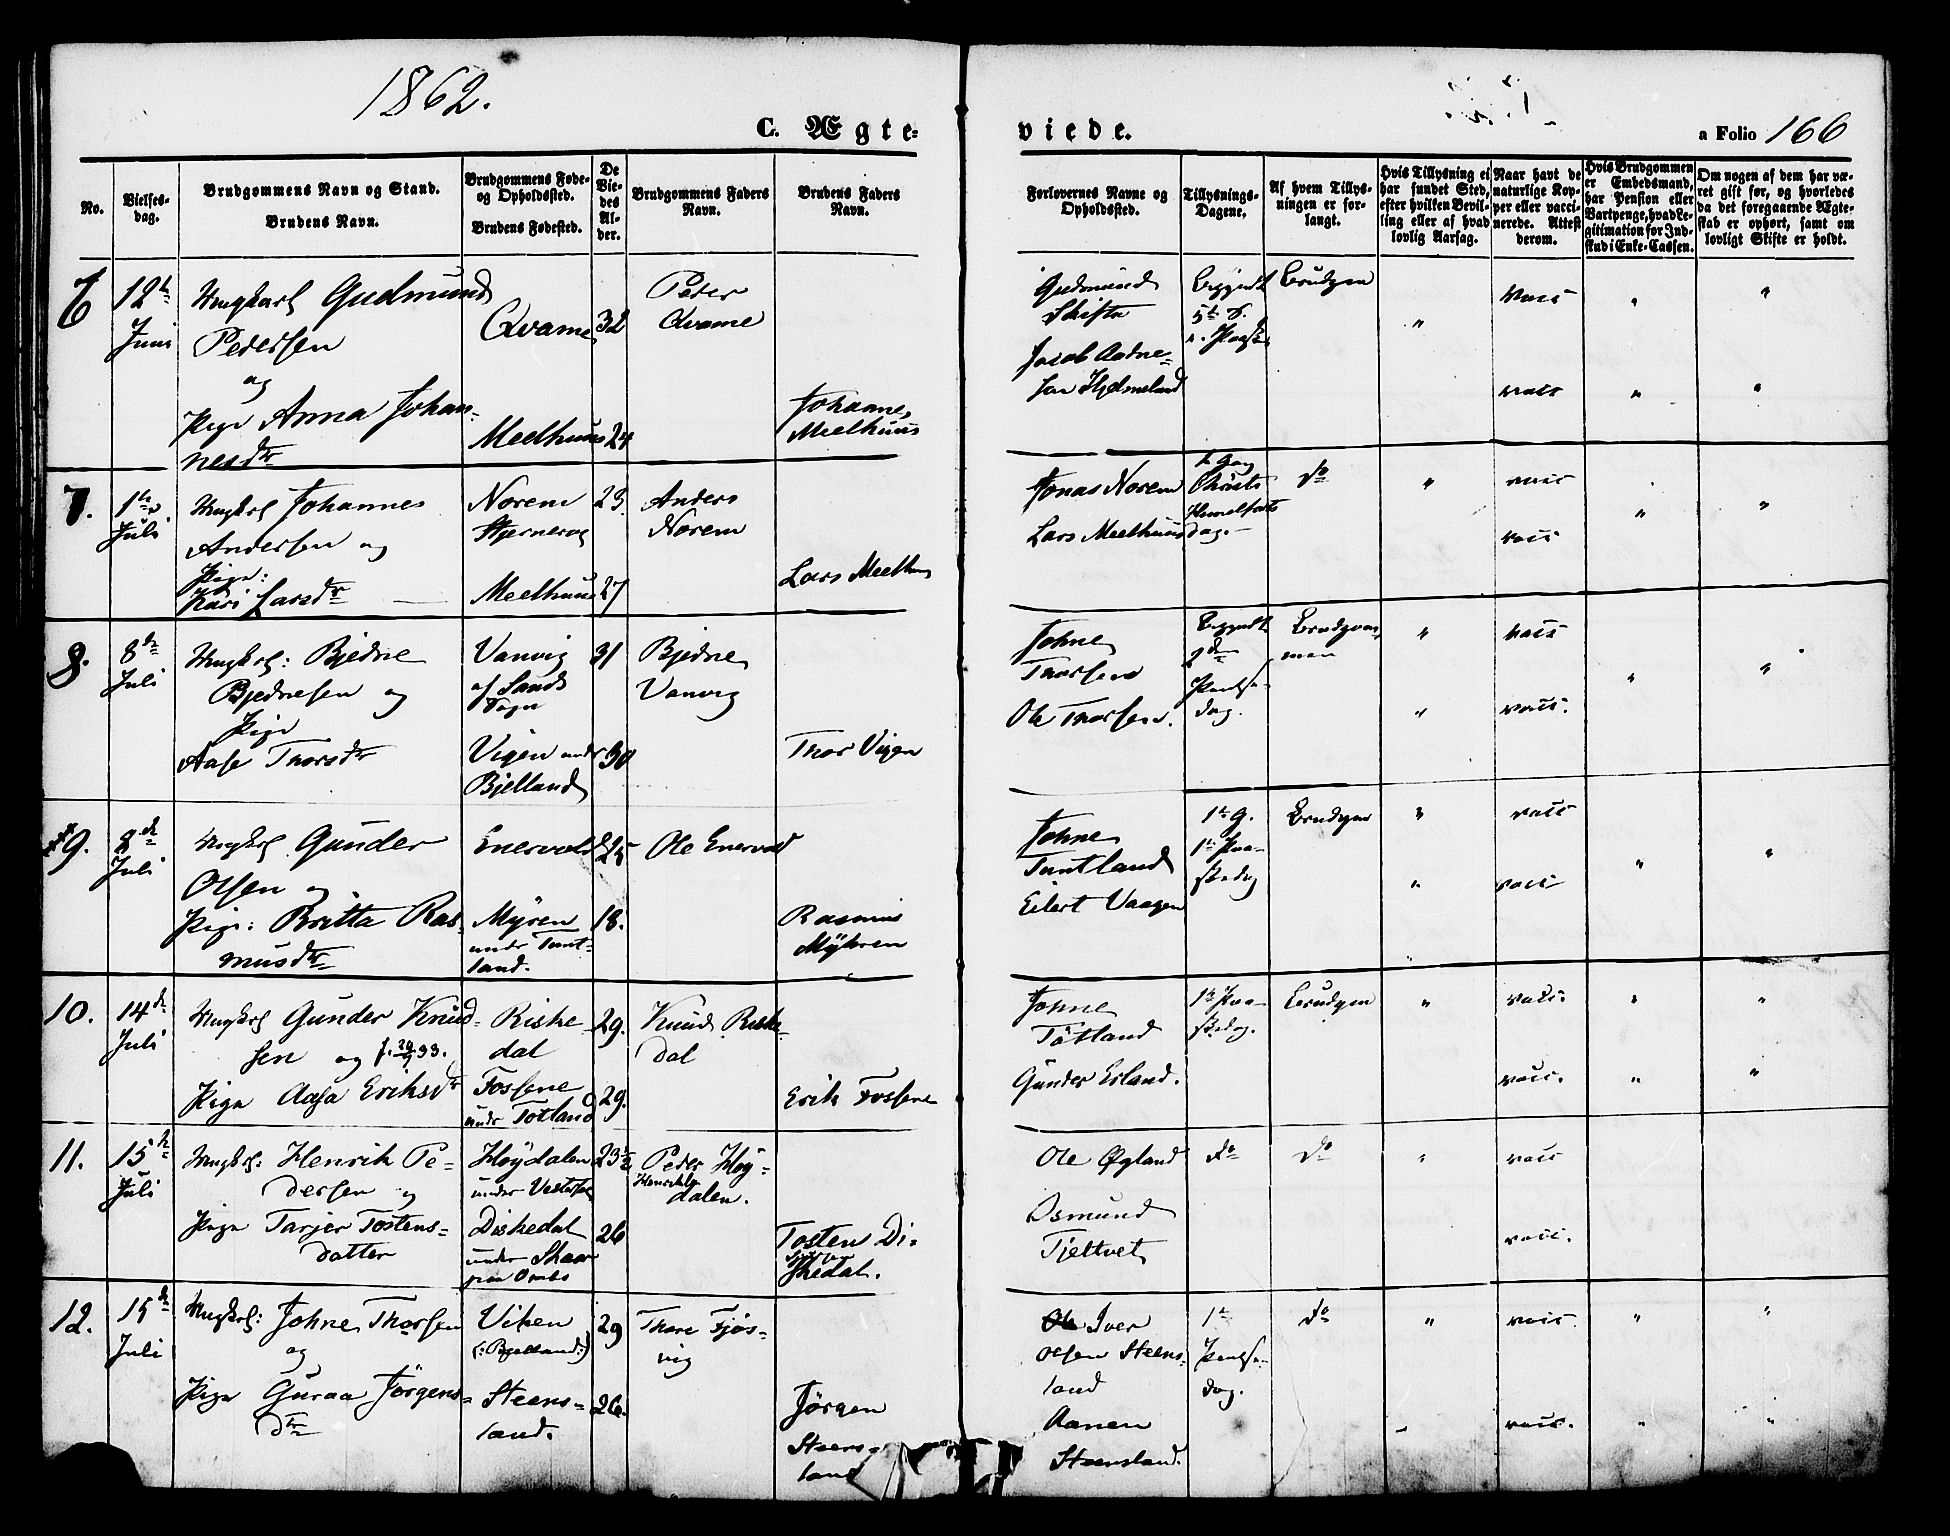 1862.
C. Ægte-
viede.
a Folio 166
No.
Vielses-
dag.
Brudgommens Navn og Stand.
Brudens Navn.
Brudgommens Føde-
og Opholdssted.
Brudens Fødested.
De
Vie-
des
Al-
der.
Brudgommens Faders
Navn.
Brudens Faders
Navn.
Forlovernes Navne og
Opholdssted.
Tillysnings-
Dagene.
Af hvem Tillys-
ningen er for-
langt.
Hvis Tillysning ei
har fundet Sted,
efter hvilken Bevil-
ling eller af hvad
lovlig Aarsag.
Naar havt de
naturlige Kop-
per eller vacci-
nerede. Attest
derom.
Hvis Brudgommen
er Embedsmand,
har Pension eller
Vartpenge, hvad Le-
gitimation for Ind-
skud i Enke-Cassen.
Om nogen af dem har væ-
ret gift før, og hvorledes
da det foregaaende Ægte-
skab er ophørt, samt om
lovligt Skifte er holdt.
6
12te
Juni
Ungkarl Gudmund
Pedersen
og
Pige Anna Johan-
nesdtr
Qvame
Meelhuus
32
24
Peder
Qvame
Johannes
Meelhuus
Gudmund
Skiftu
Jacob Aadne-
sen Hjelmeland
Begyndt
5te S.
e. Paaske
Brudgm
"
vacc
vacc
"
"
"
"
7.
1te
Juli
Ungkarl Johannes
Andersen og
Pige:
Kari Larsdtr
Norem
Stjernerog
Meelhuus
23.
27
Anders
Norem
Lars Meelhus
Jonas Norem
Lars Meelhuus
1te Gang
Christi
Himmelfarts
dag.
do
"
vacc
vacc
"
"
8.
8de
Juli
Ungkarl: Bjedne
Bjednesen og
Pige
Aase Thorsdtr
Vanvig
af Sands
Sogn
Vigen under
Bjelland
31
30
Bjedne
Vanvig
Thor Vigen
Johne
Thorsen
Ole Thorsen.
Begyndt
2den
Pintse-
dag.
Brudgom-
men
"
"
vacc
vacc.
"
"
9.
8de
Juli
Ungkarl Gunder
Olsen og
Pige: Britta Ras-
musdtr
Enervold
Myren
under Tunt-
land.
25
18.
Ole Enervold
Rasmus
Myhren
Johne
Tuntland
Eilert Vaagen
1te G.
1te Paa-
skedag
Brudgm
"
"
"
vacc
vacc
"
"
10.
14de
Juli
Ungkarl Gunder Knud-
sen og
Pige Aasa Eriksdtr
Riske-
dal
Fossene
under Totland
29.
29.
Knud Riske-
dal
Erik Fossene
Johne
Tøtland
Gunder Erland.
1te Paa-
skedag.
Brudgm
"
vacc.
vacc.
"
"
"
"
11.
15de
Juli
Ungkarl: Henrik Pe-
dersen og
Pige Tarjer Tostens-
datter
Høydalen
under
Diskedal
under
23½
26
Peder Høy-
dalen.
Tosten Di-
skedal.
Ole Øgland
Osmund
Tjeltvet
do
do
"
vacc
vacc.
12.
15de
Juli
Ungkarl: Johne Thorsen
og
Pige Guraa Jørgens-
dtr
Viken
(:Bjelland:)
Steens-
land.
29
26.
Thore Fjøs-
vig
Jørgen
Steens-
land
Iver
Olsen Steens-
land
Aanen
Steensland.
1te
Pintse-
dag.
do
"
vacc.
vacc.
"
"
"
"